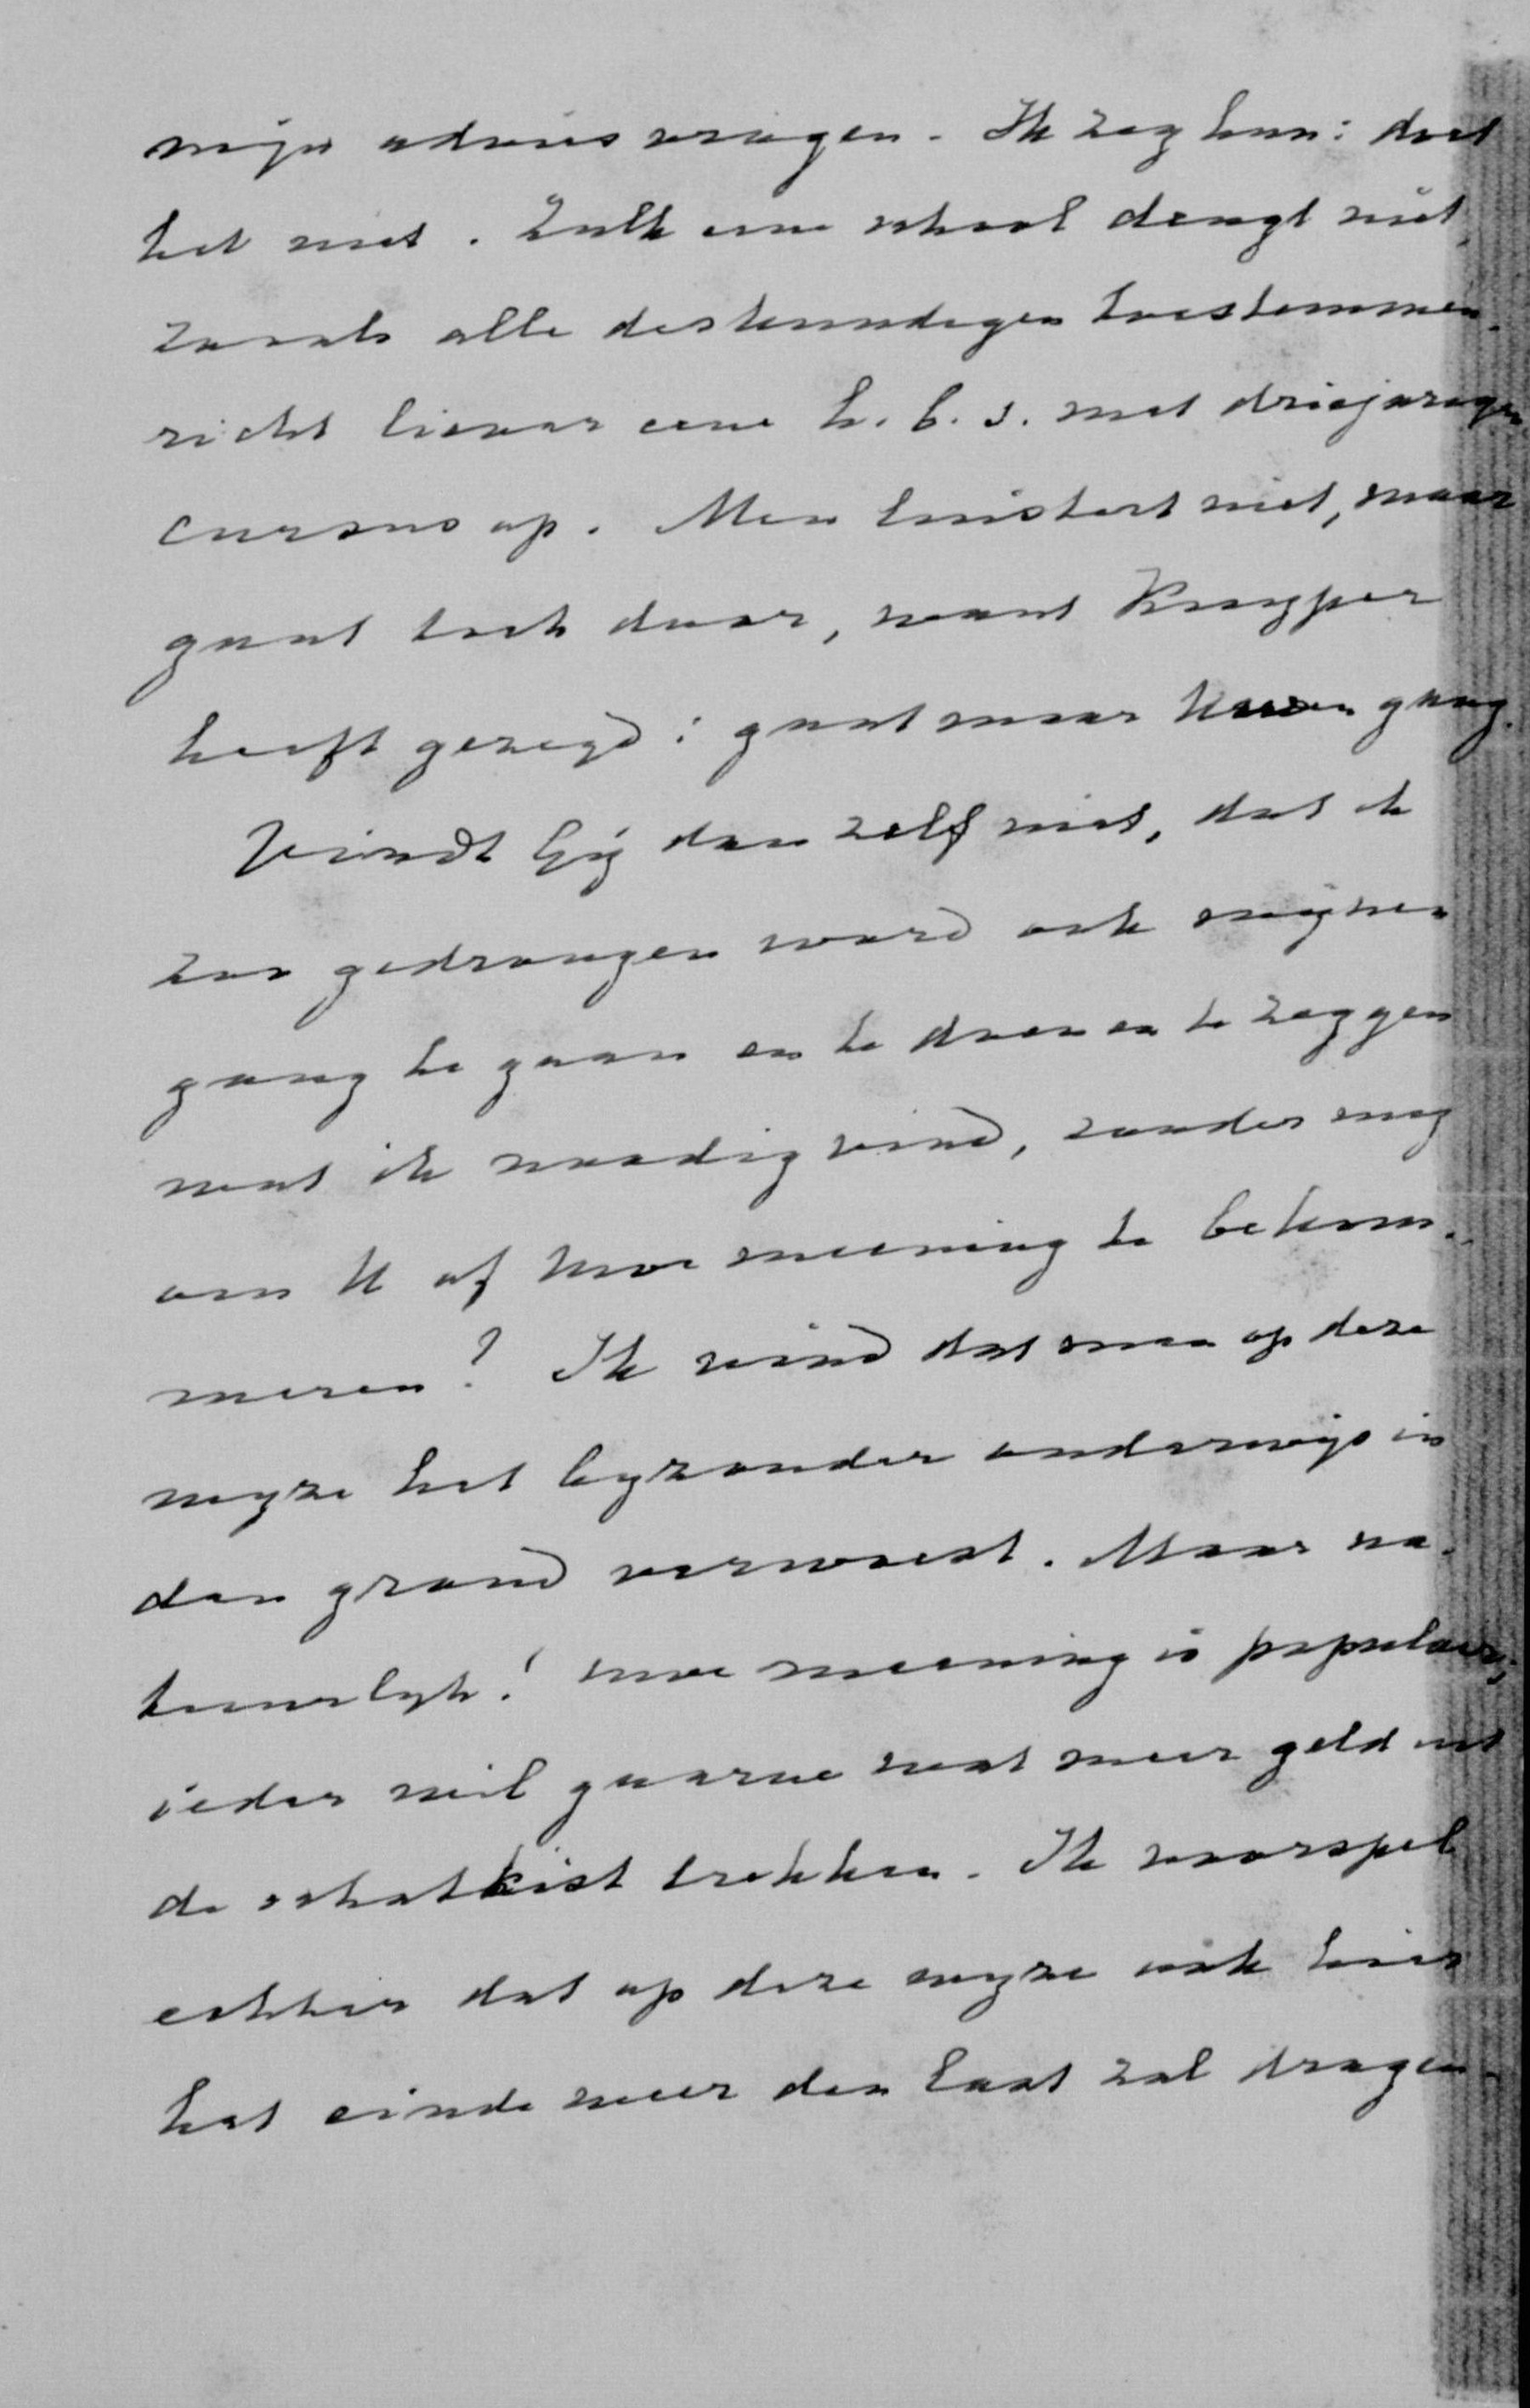 mijn advies vragen. Ik zeg hun: doet
het niet. Zulk eene school deugt niet,
zooals alle deskundigen toestemmen.
richt liever eene h. b. s. met driejarigen
cursus op. Men luistert niet, maar
gaat toch door, want Kuyper
heeft gezegd: gaat maar Uwen gang.
Vindt Gij dan zelf niet, dat ik
zoo gedrongen word ook mijnen
gang te gaan en te doen en te zeggen
wat ik noodig vind, zonder mij
om U of Uwe meening te bekom-
meren? Ik vind dat men op deze
wyze het byzonder onderwijs in
den grond verwoest. Maar na-
tuurlyk! Uwe meening is populair;
ieder wil gaarne wat meer geld uit
de schatkist trekken. Ik voorspel
echter dat op deze wyze ook hier
het einde weer den last zal dragen.